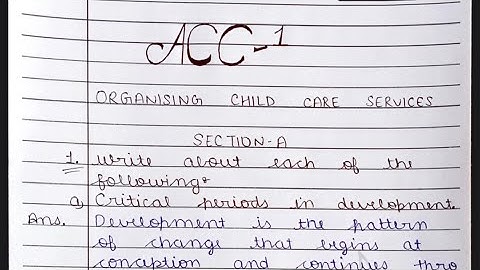 ACC-1
ORGANISING CHILD CARE SERVICES
SECTION-A
1. Write about each of the
following:
a) Critical periods in development.
Ans. Development is the pattern
of change that begins at
conception and continues thro